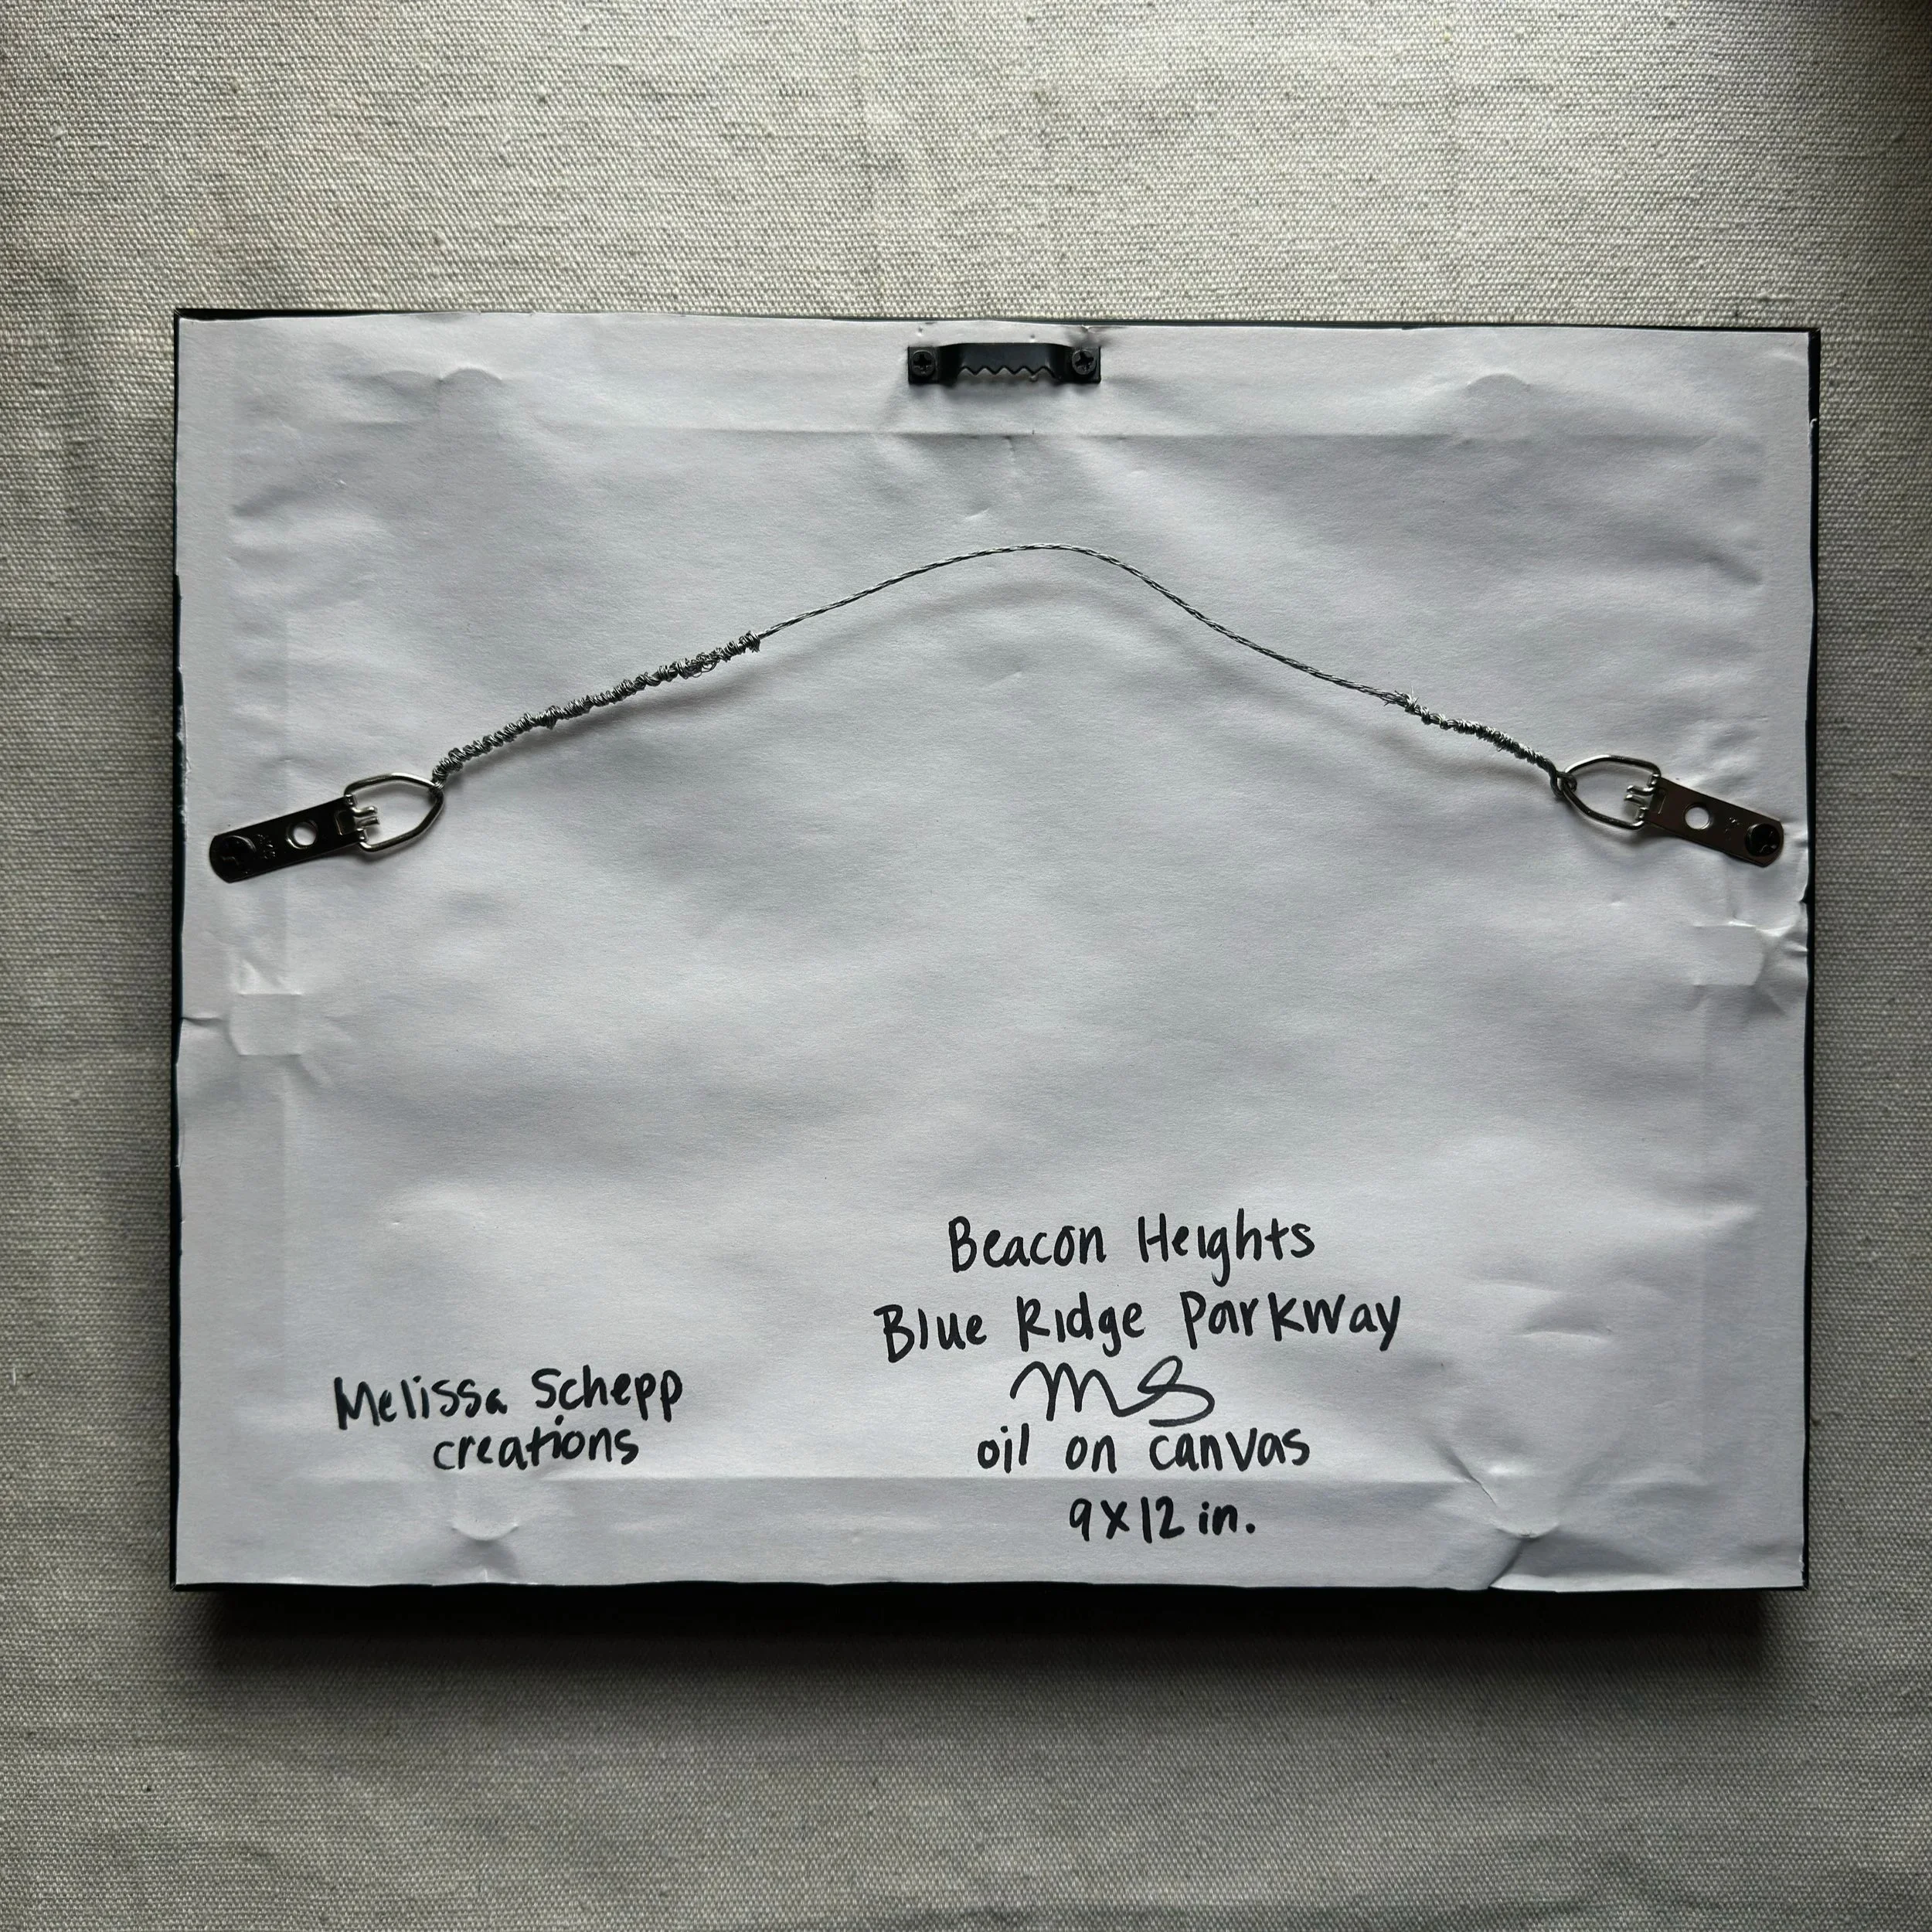 Beacon Heights
Blue Ridge Parkway
MS
oil on canvas
9x12 in.
Melissa Schepp
creations